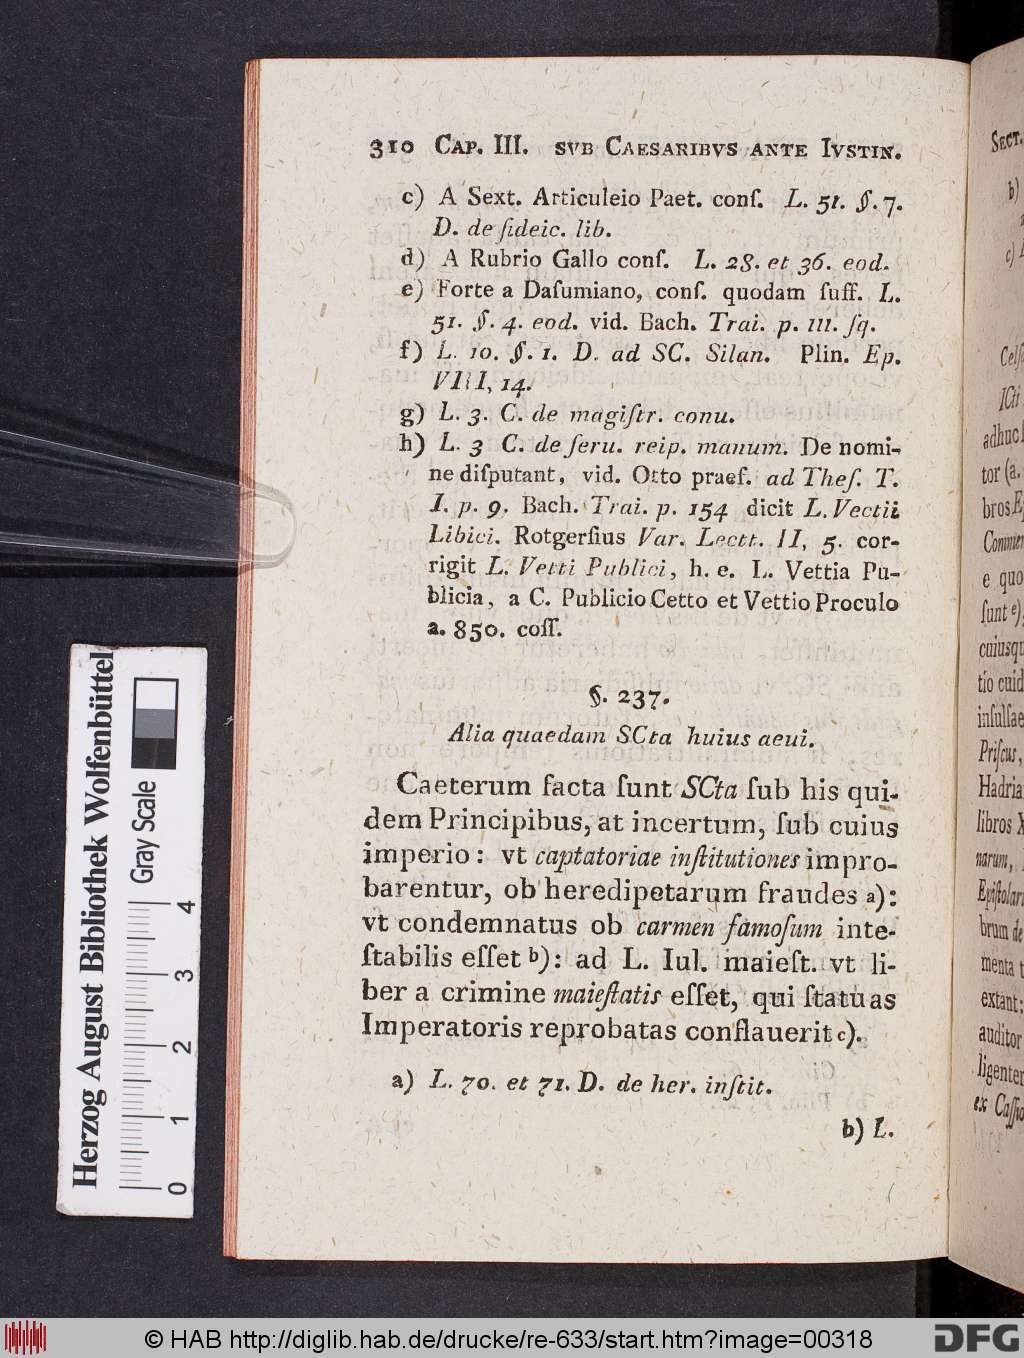 310 CAP. III. SVB CAESARIBVS ANTE IVSTIN.
c) A Sext. Articuleio Paet. conſ. L. 51. §. 7.
D. de fideic. lib.
d) A Rubrio Gallo conſ. L. 28. et 36. eod.
e) Forte a Daſumiano, conſ. quodam ſuff. L.
51. §. 4. eod. vid. Bach. Trai. p. 111. ſq.
f) L. 10. §. 1. D. ad SC. Silan. Plin. Ep.
VIII, 14.
g) L. 3. C. de magiſtr. conu.
h) L. 3 C. de ſeru. reip. manum. De nomi-
ne diſputant, vid. Otto praef. ad Theſ. T.
I. p. 9. Bach. Trai. p. 154 dicit L. Vectii
Libici. Rotgerſius Var. Lectt. II, 5. cor-
rigit L. Vetti Publici, h. e. L. Vettia Pu-
blicia, a C. Publicio Cetto et Vettio Proculo
a. 850. coſſ.
§. 237.
Alia quaedam SCta huius aeui.
Caeterum facta ſunt SCta ſub his qui-
dem Principibus, at incertum, ſub cuius
imperio: vt captatoriae inſtitutiones impro-
barentur, ob heredipetarum fraudes a):
vt condemnatus ob carmen famoſum inte-
ſtabilis eſſet b): ad L. Iul. maieſt. vt li-
ber a crimine maieſtatis eſſet, qui ſtatuas
Imperatoris reprobatas conflauerit c).
a) L. 70. et 71. D. de her. inſtit.
b) L.
SECT.
b)
c)
Celſ
ICti
adhuc
tor (a.
bros
Commen
e quo
ſunt e)
cuiusqu
tio cuid
inſulſae
Priſcus,
Hadria
libros X
narum,
Epiſtolar
brum de
menta t
extant:
auditor
ligenter
ex Caſſio
Herzog August Bibliothek Wolfenbüttel
Gray Scale
4
3
2
1
0
© HAB http://diglib.hab.de/drucke/re-633/start.htm?image=00318
DFG